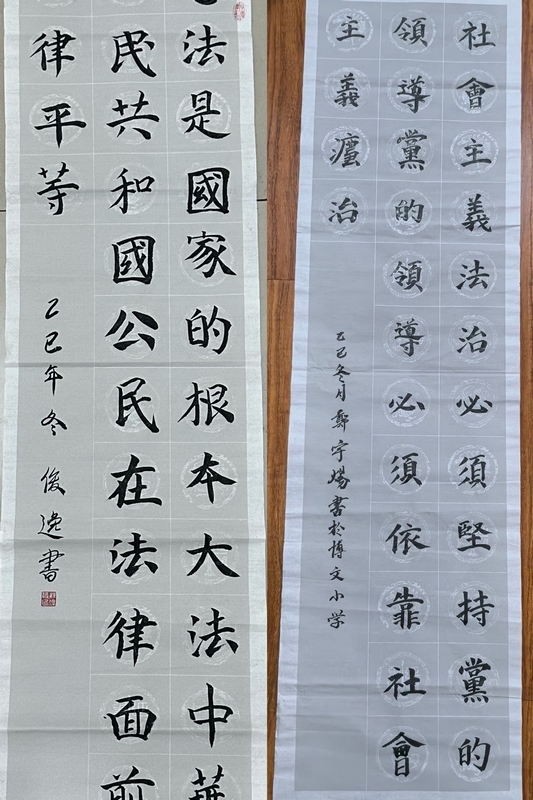 法是國家的根本大法中華
民共和國公民在法律面前
律平等
乙巳年冬 俊逸書
社會主義法治必須堅持黨的
領導黨的領導必須依靠社會
主義治
乙巳冬月鄭宇書於博文小学